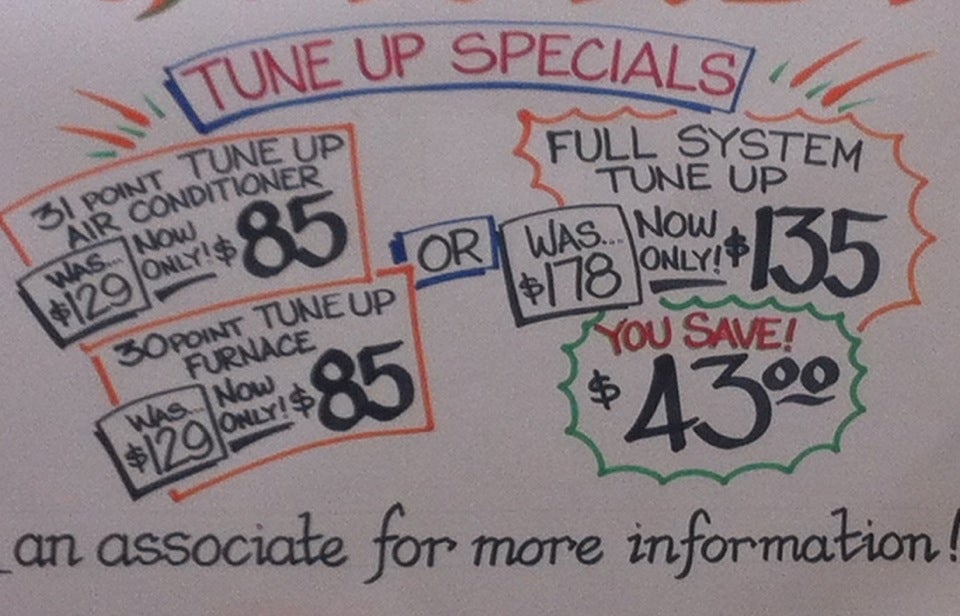 TUNE UP SPECIALS
31 POINT TUNE UP
AIR CONDITIONER
WAS...
$129
NOW
ONLY!
$85
30 POINT TUNE UP
FURNACE
WAS...
$129
NOW
ONLY!
$85
OR
FULL SYSTEM
TUNE UP
WAS...
$178
NOW
ONLY!
$135
YOU SAVE!
$43.00
an associate for more information!